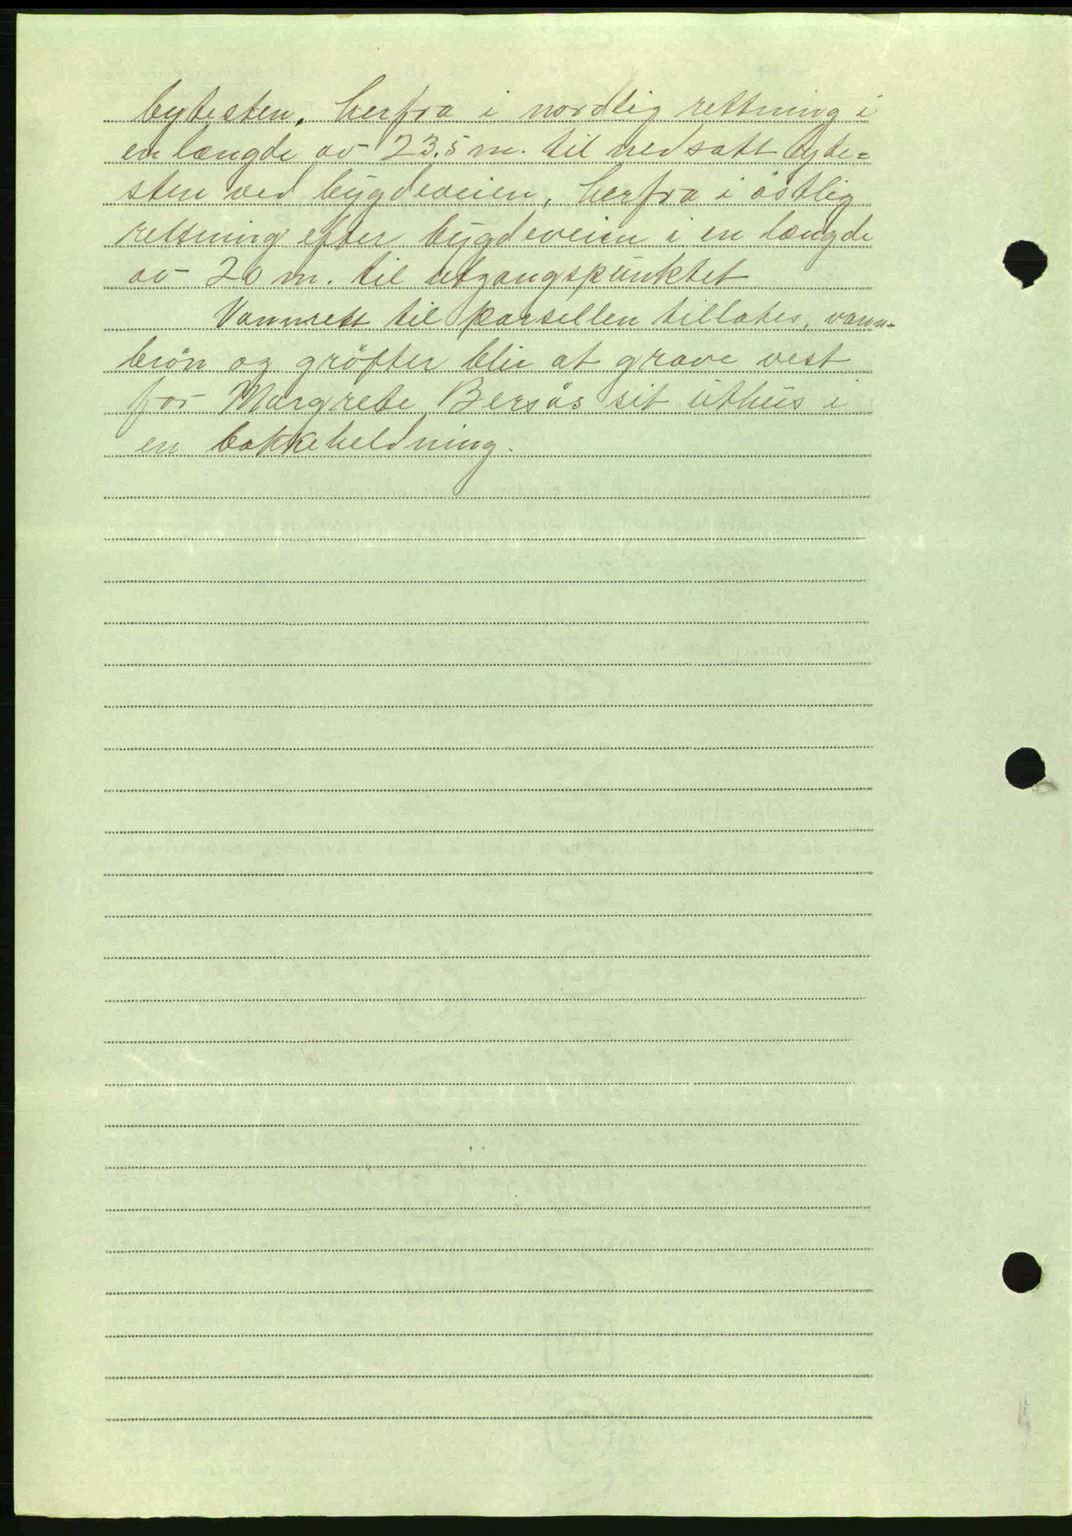 bytesten, herfra i nordlig rettning i
en længde av 23.5 m. til nedsatt byte=
sten ved bygdeveien, herfra i östlig
rettning efter bygdeveien i en længde
av 20 m. til utgangspunktet
Vannrett til parsellen tillates, vann-
brön og gröfter blir at grave vest
for Margrete Bersås sit uthus i
en bakkeheldning.